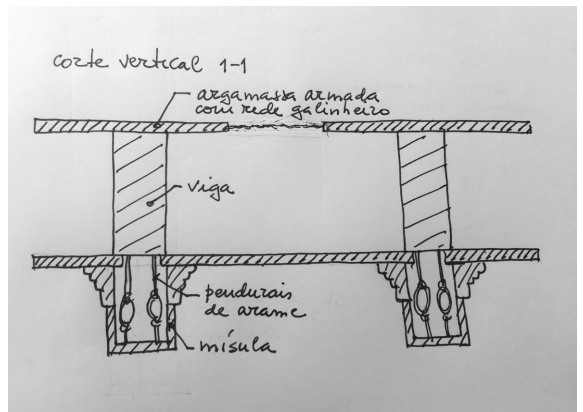 corte vertical 1-1
argamassa armada
com rede galinheiro
viga
pendurais
de arame
mísula